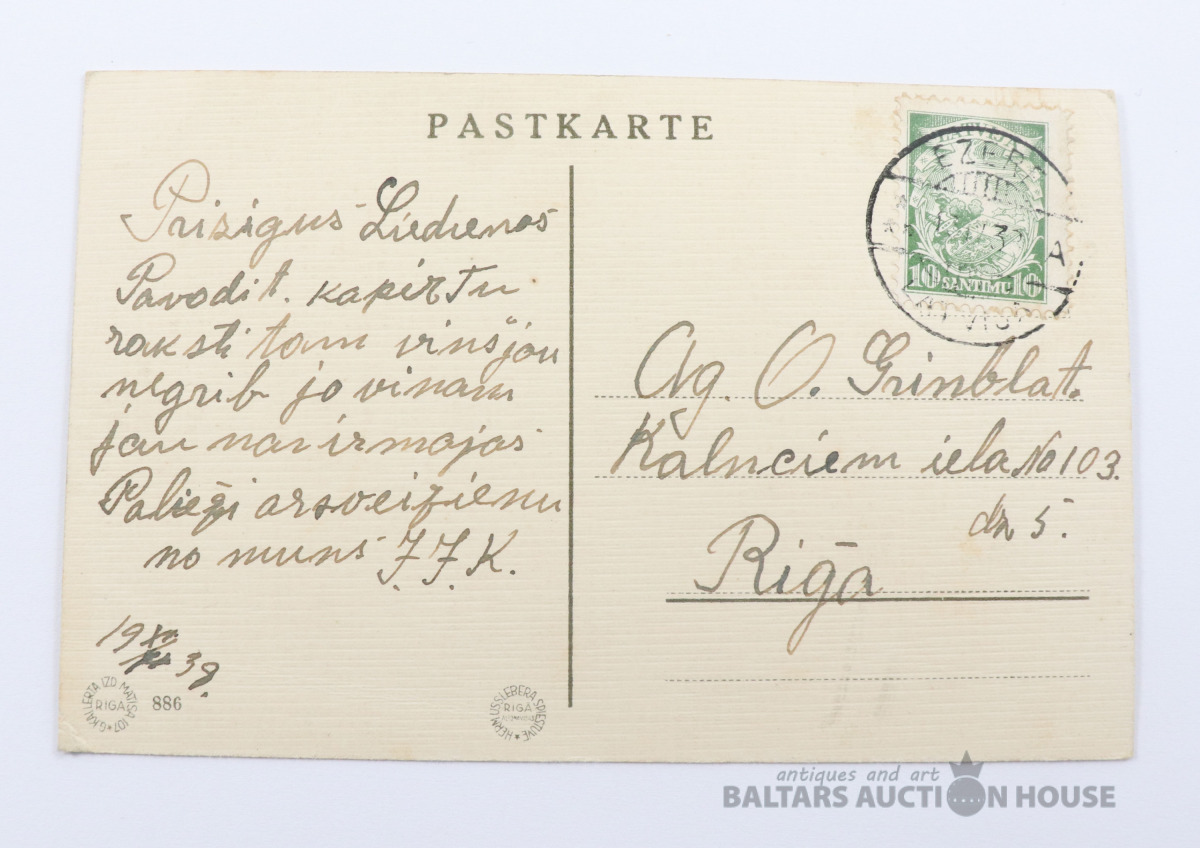 PASTKARTE
LATVIJA
EZERE
A
10 SANTIMU 10
Prizigus Liedienas
Pavodit. kapēr Tu
raksti tam vinš jau
negrib jo vinam
jau nav ir majas
Palieži arsveizienu
no muns J. J. K.
19 38.
Avg. O. Grinblat.
Kalnciem iela No 103.
dz 5.
Rīgā
G. KALLERTA IZD. MATISA 107
RIGA
886
HERM. USSLEBERA SPIESTUVE
RIGA
antiques and art
BALTARS AUCTION HOUSE